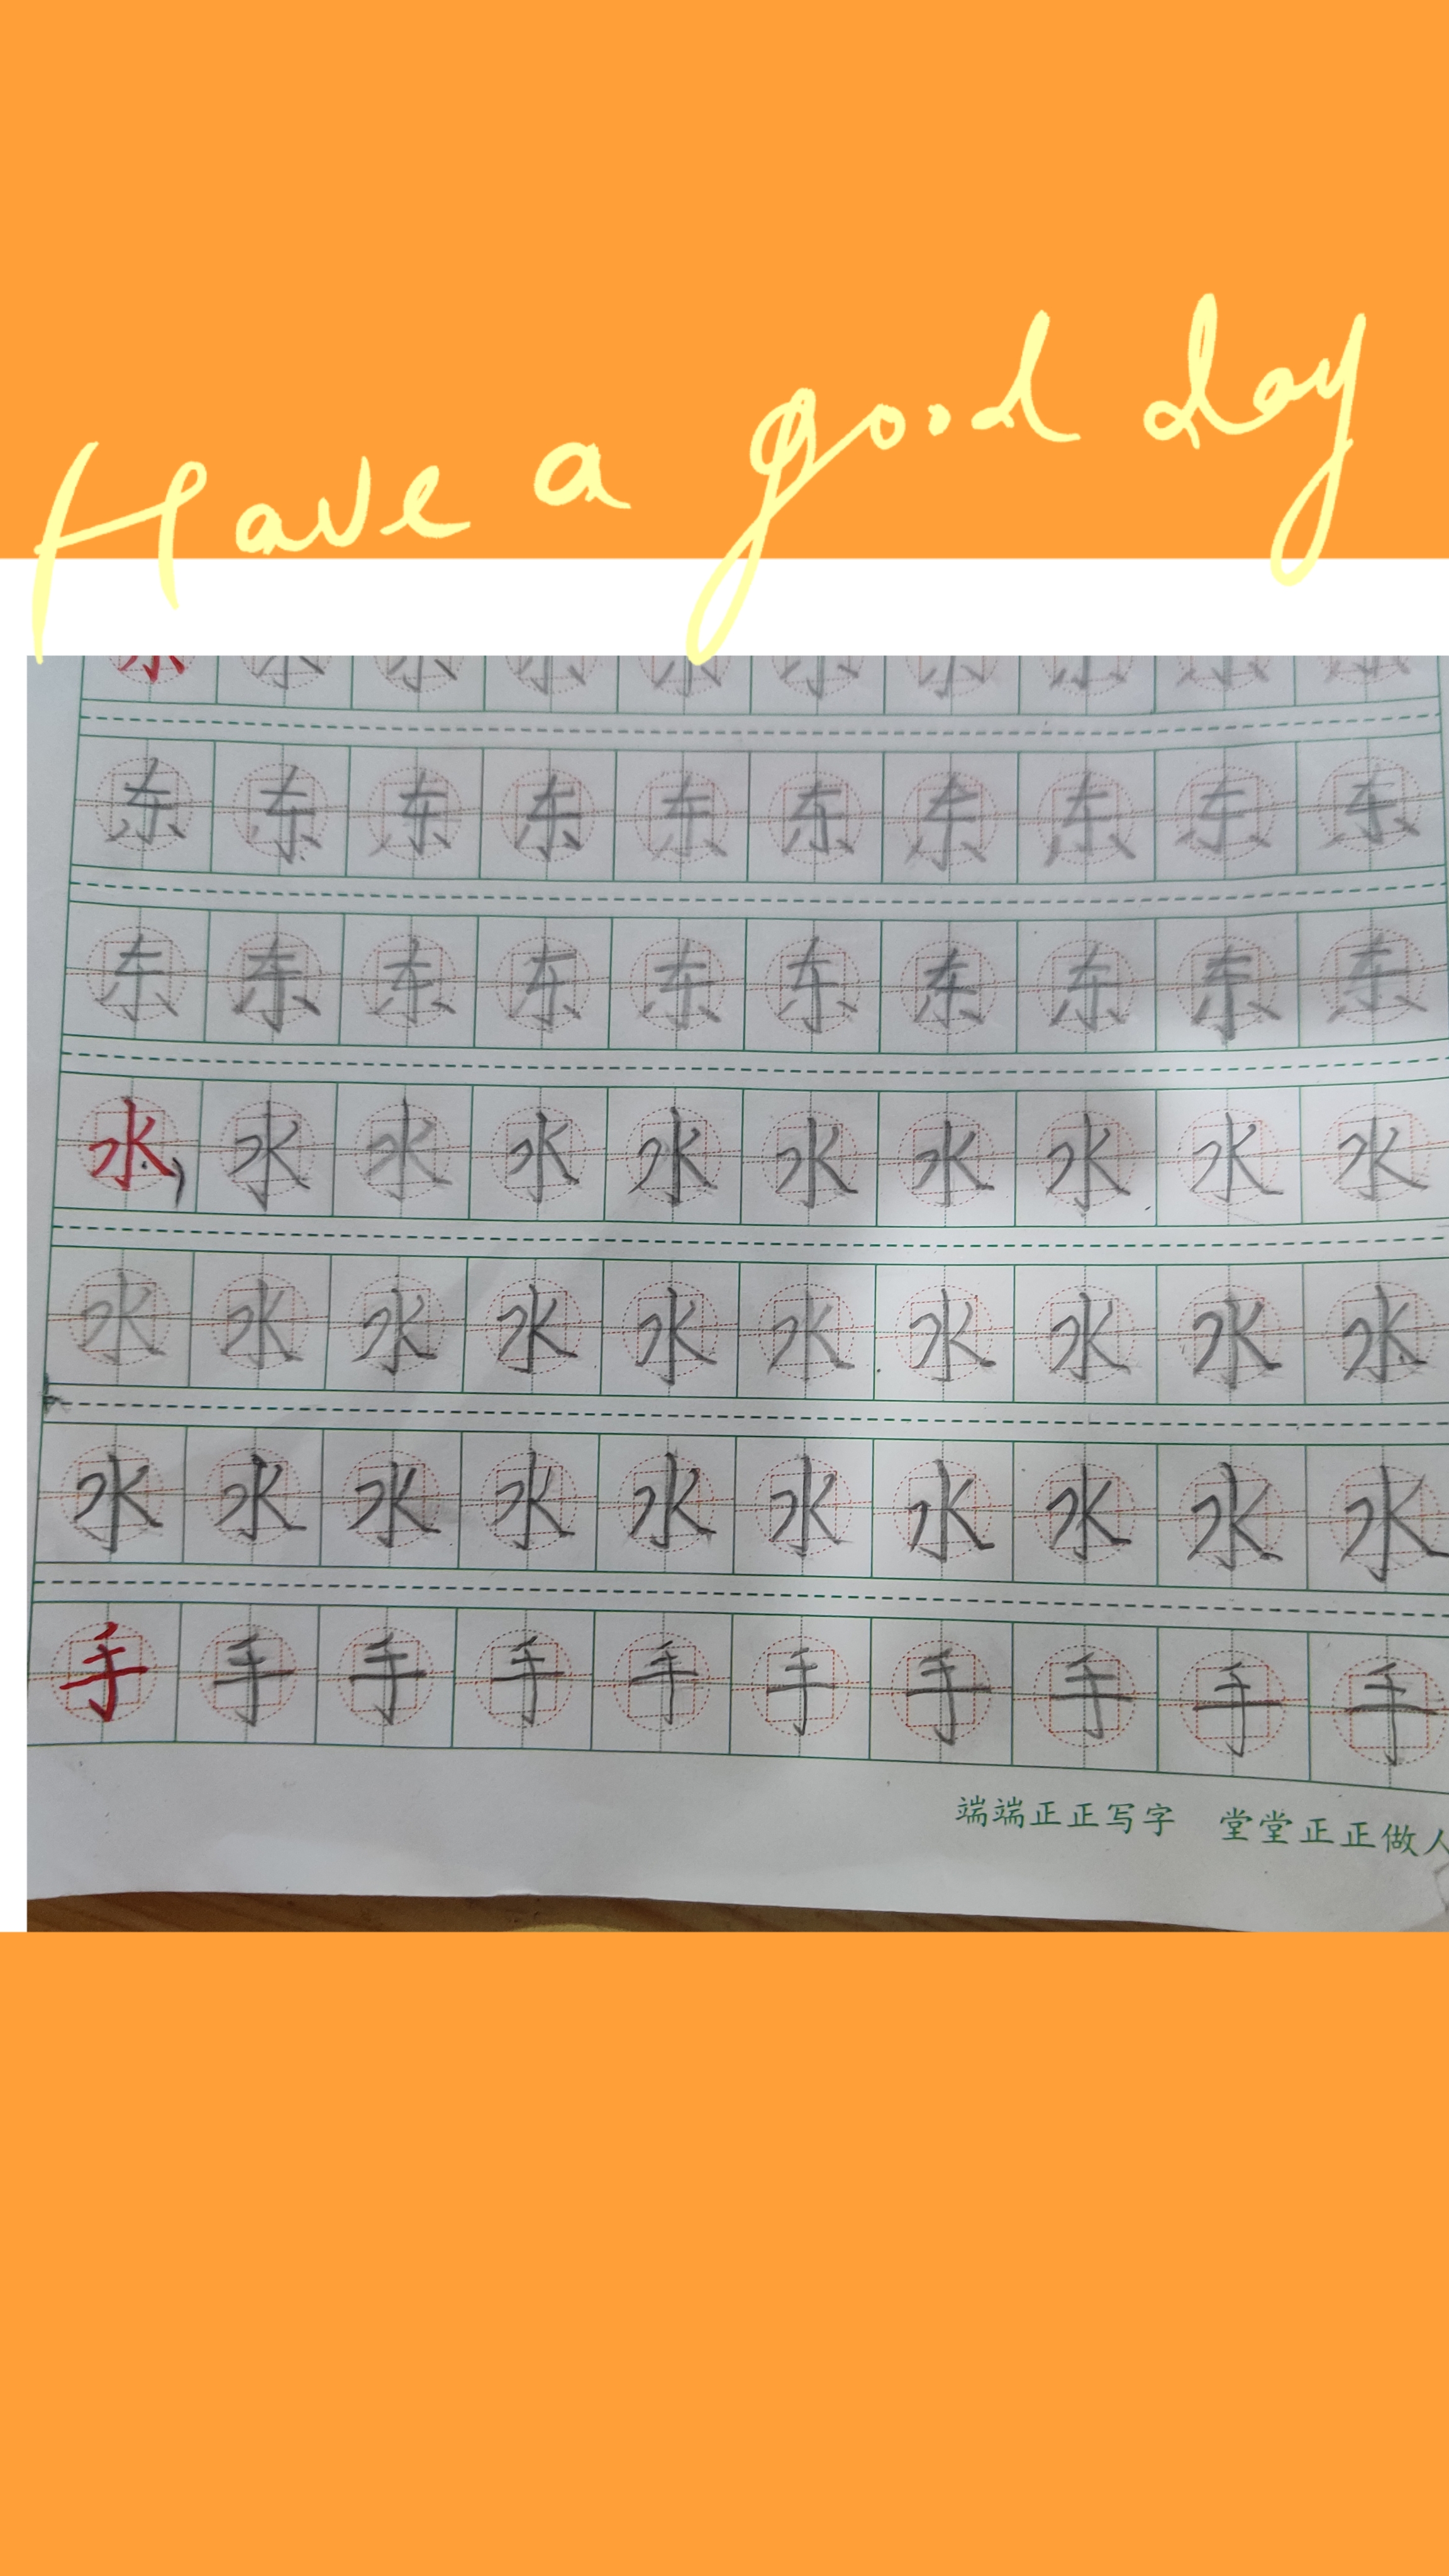 Have a good day
东 东 东 东 东 东 东 东 东 东
东 东 东 东 东 东 东 东 东 东
水 水 水 水 水 水 水 水 水 水
水 水 水 水 水 水 水 水 水 水
水 水 水 水 水 水 水 水 水 水
手 手 手 手 手 手 手 手 手 手
端端正正写字 堂堂正正做人